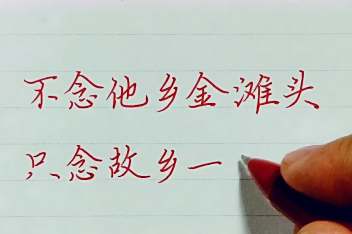 不念他乡金滩头
只念故乡一